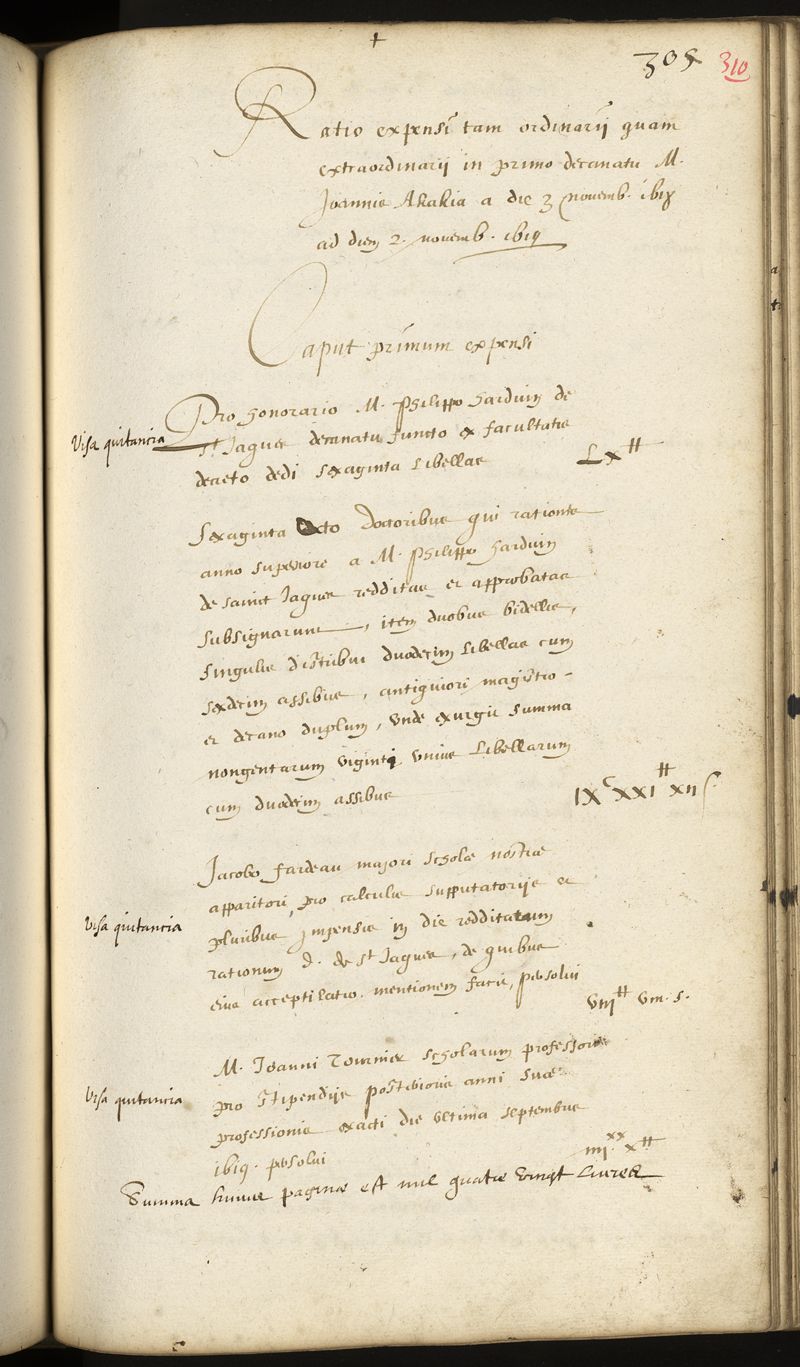 +
305 310
Ratio expensi tam ordinarij quam
extraordinarij in primo decanatu M.
Joannis Akakia a die 3 novemb. 1618
ad diem 2. novemb. 1619
Caput primum expensi
Pro honorario M. Philippo harduin de
Visa quitancia
st Jaques decanatu functo ex facultatis
decreto dedi sexaginta libellas LX ₶
Sexaginta octo doctoribus qui rationes
anno superiore a M. Philippo harduin
de sainct Jaques redditas et approbatas
subsignarunt, item duobus bidellis,
singulis distribui duodecim libellas cum
sexdecim assibus, antiquiori magistro
et decano duplum, unde exurgit summa
nongentarum viginti unius libellarum
cum duodecim assibus IXc XXI ₶ XII s.
Jacobo fardeau majori scholæ nostræ
apparitori, pro calculis supputatorijs et
Visa quitancia
pluribus impensis in die redditarum
rationum D. de st Jaques, de quibus
eius acceptilatio mentionem facit, persolvi
VIII ₶ VIII. s.
M. Joanni Tournier scholarum professori
Visa quitancia
pro stipendijs posterioris anni suæ
professionis exacti die ultima septembris
1619. persolvi IIII xx X ₶
Summa huius paginæ est mil quatre vingt livres